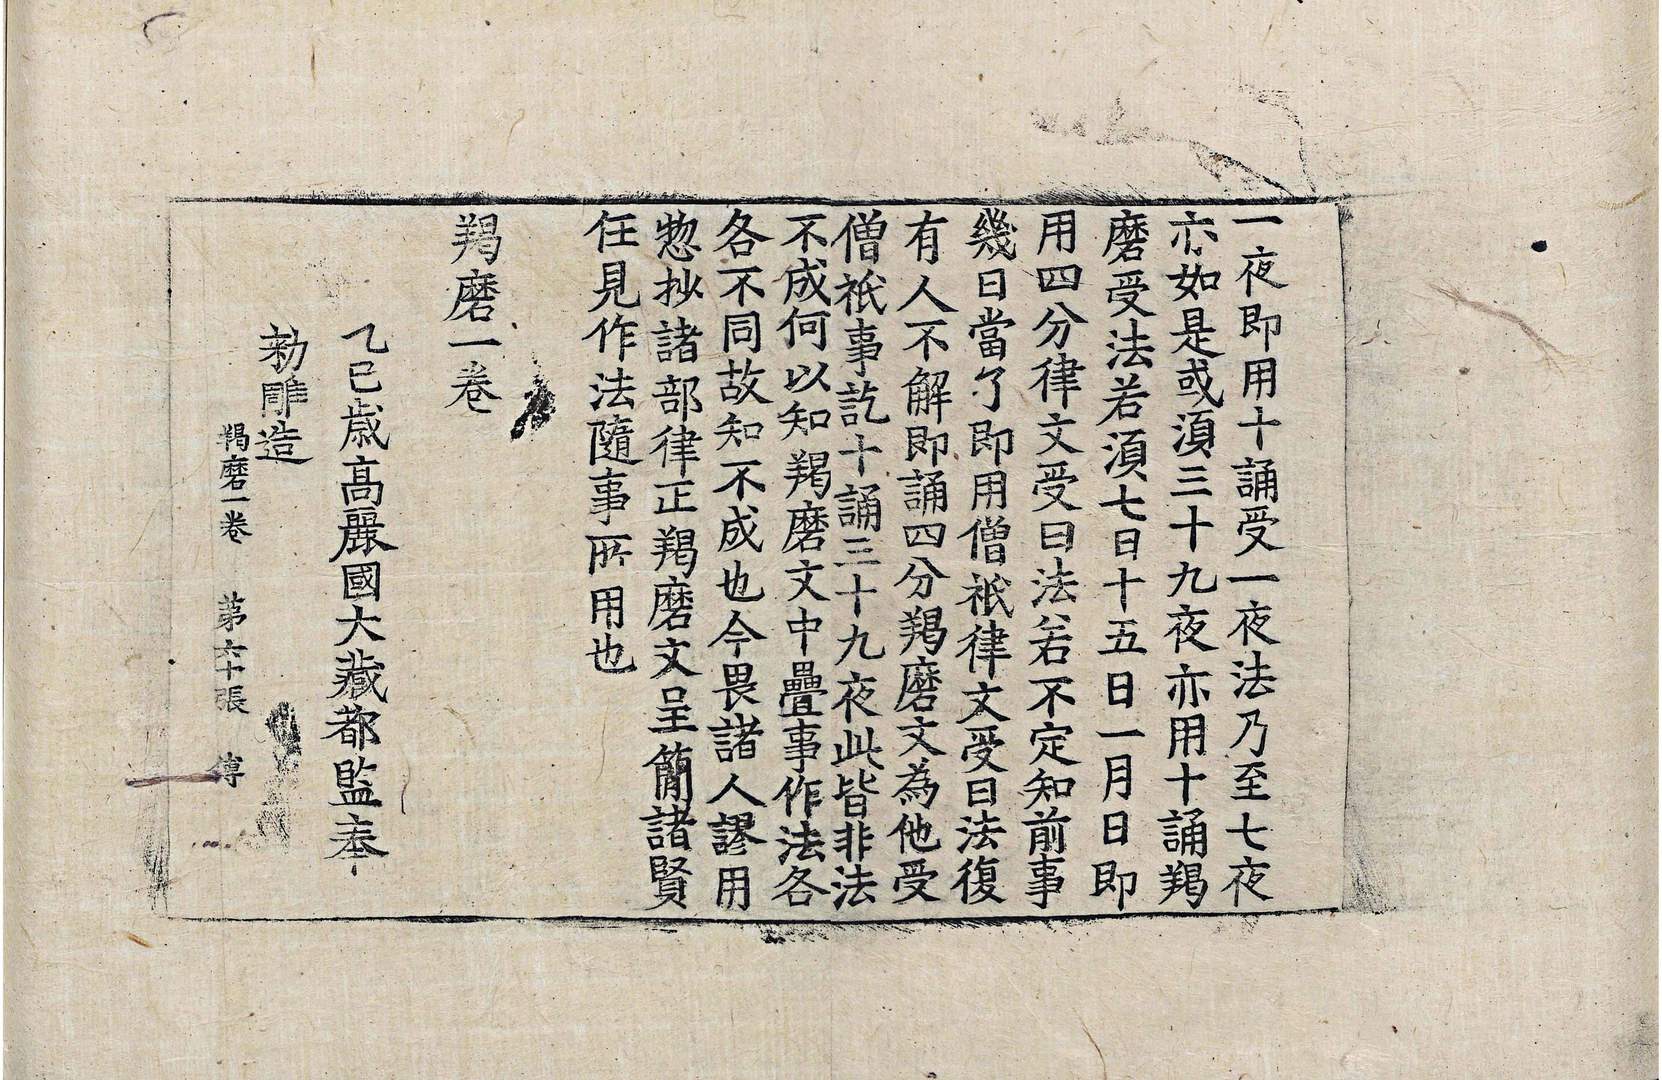 一夜即用十誦受一夜法乃至七夜
亦如是或湏三十九夜亦用十誦羯
磨受法若湏七日十五日一月日即
用四分律文受日法若不定知前事
幾日當了即用僧祇律文受日法復
有人不解即誦四分羯磨文為他受
僧祇事訖十誦三十九夜此皆非法
不成何以知羯磨文中疊事作法各
各不同故知不成也今畏諸人謬用
惣抄諸部律正羯磨文呈簡諸賢
任見作法隨事所用也
羯磨一卷
乙巳歳高麗國大藏都監奉
勅雕造
羯磨一卷 第六十張 傅